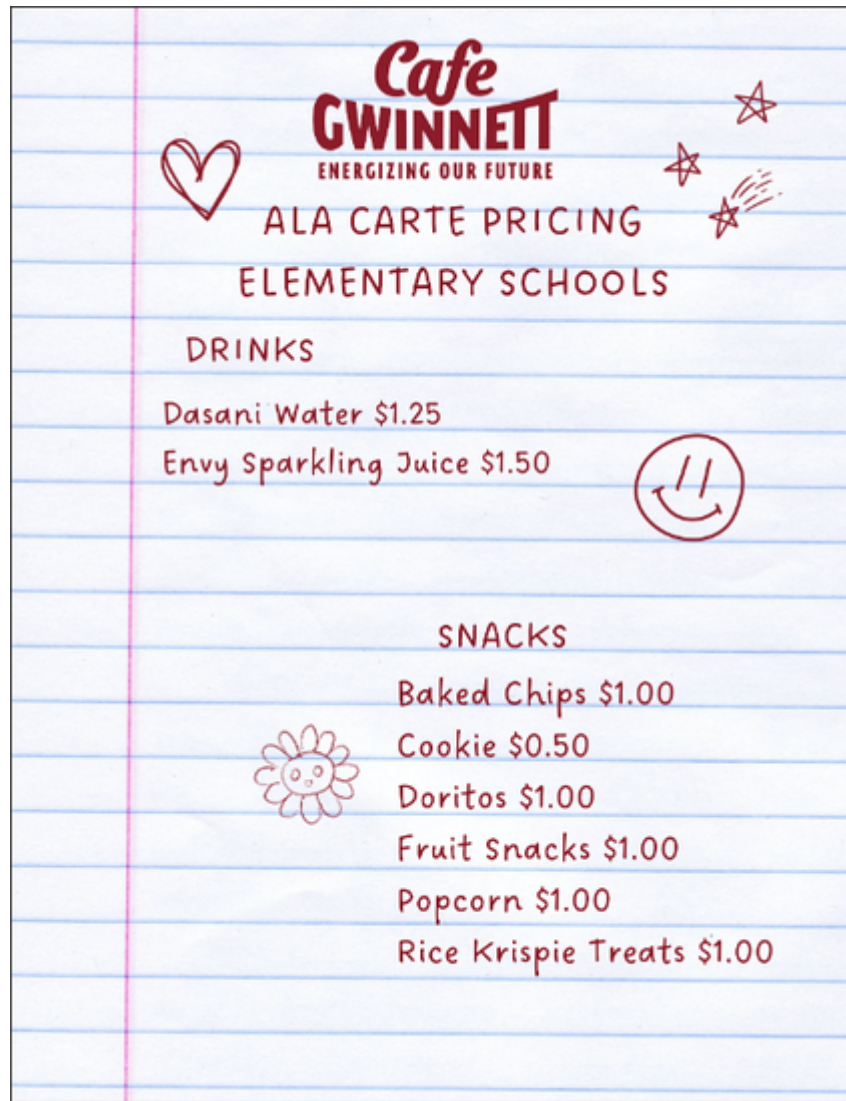 Cafe
GWINNETT
ENERGIZING OUR FUTURE
ALA CARTE PRICING
ELEMENTARY SCHOOLS
DRINKS
Dasani Water $1.25
Envy Sparkling Juice $1.50
SNACKS
Baked Chips $1.00
Cookie $0.50
Doritos $1.00
Fruit Snacks $1.00
Popcorn $1.00
Rice Krispie Treats $1.00